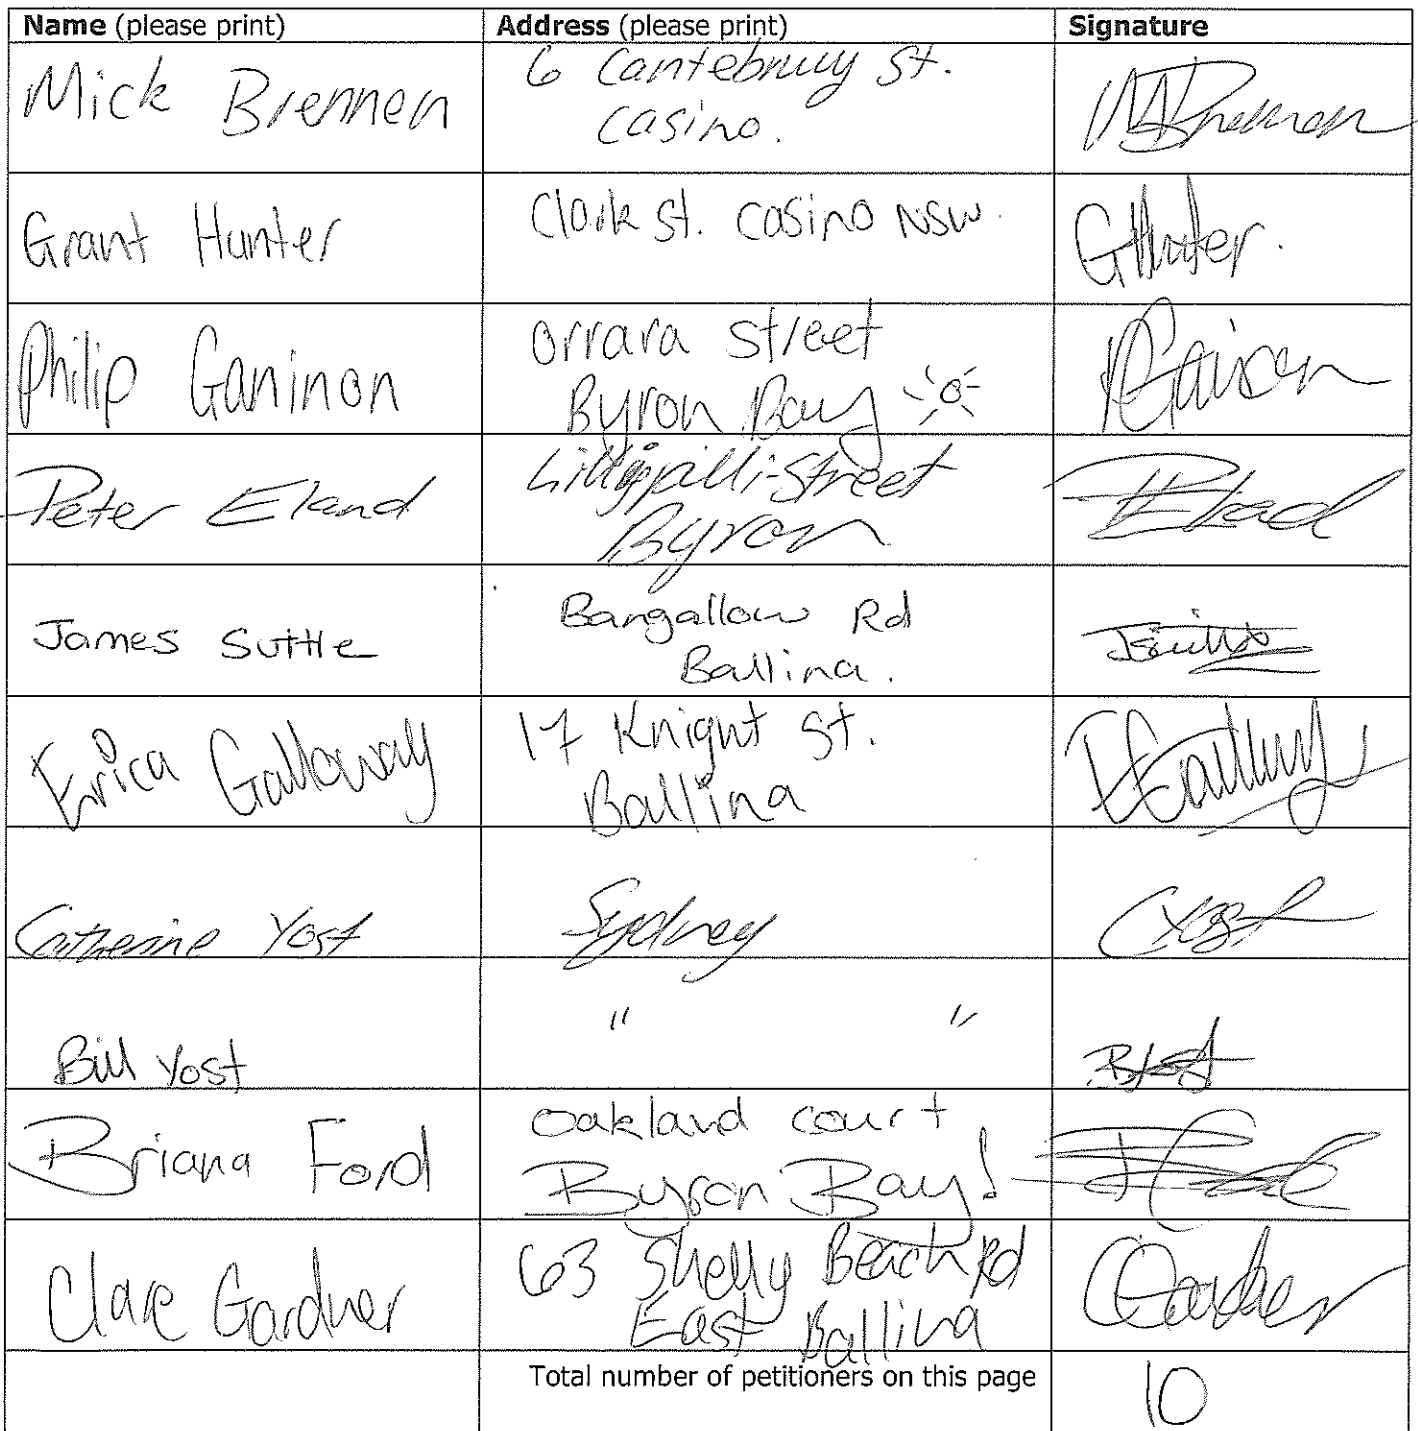 Name (please print) Address (please print) Signature
Mick Brennen 6 Cantebruy St.
Casino. MBrennen
Grant Hunter Clark St. Casino NSW. GHunter.
Philip Ganinon Orrara Street
Byron Bay
Peter Eland Lillypilli-Street
Byron PEland
James Suttle Bangallow Rd
Ballina.
Erica Galloway 17 Knight St.
Ballina
Catherine Yost Sydney CYost
Bill Yost " " BYost
Briana Ford Oakland Court
Byron Bay!
Clare Gardner 63 Shelly Beach Rd
East Ballina CGardner
Total number of petitioners on this page 10